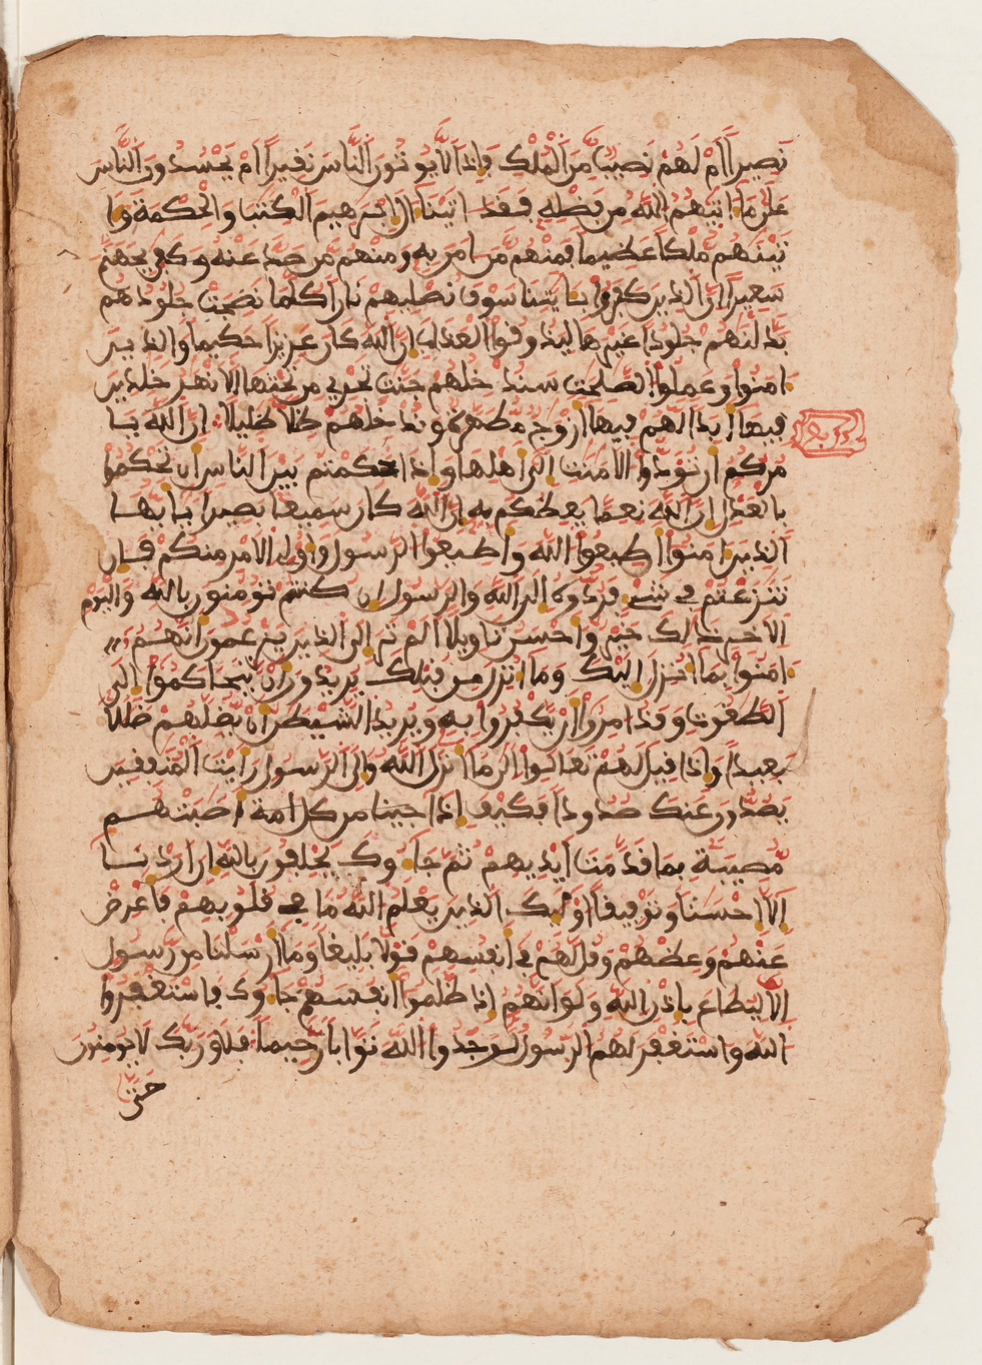 نَصِيراً اَمْ لَهُمْ نَصِيبٌ مِّنَ اَلْمُلْكِ فَإِذاً لَّا يُوتُونَ اَلنَّاسَ نَقِيراً اَمْ يَحْسُدُونَ اَلنَّاسَ
عَلَىٰ مَا ءَاتَيٰهُمُ اُللَّهُ مِن فَضْلِهِ فَقَدَ اتَيْنَا ءَالَ إِبْرَٰهِيمَ اَلْكِتَٰبَ وَالْحِكْمَةَ وَءَا
تَيْنَٰهُم مُّلْكاً عَظِيماً فَمِنْهُم مَّنَ ـامَنَ بِهِ وَمِنْهُم مَّن صَدَّ عَنْهُ وَكَفَىٰ بِجَهَنَّمَ
سَعِيراً اِنَّ اَلذِينَ كَفَرُوا بِـَٔايَٰتِنَا سَوْفَ نُصْلِيهِمْ نَاراً كُلَّمَا نَضِجَتْ جُلُودُهُم
بَدَّلْنَٰهُمْ جُلُوداً غَيْرَهَا لِيَذُوقُوا اُلْعَذَابَ إِنَّ اَللَّهَ كَانَ عَزِيزاً حَكِيماً وَالذِينَ
ءَامَنُوا وَعَمِلُوا اُلصَّٰلِحَٰتِ سَنُدْخِلُهُمْ جَنَّٰتٍ تَجْرِي مِن تَحْتِهَا اَلَانْهَٰرُ خَٰلِدِينَ
فِيهَا أَبَداً لَّهُمْ فِيهَا أَزْوَٰجٌ مُّطَهَّرَةٌ وَنُدْخِلُهُمْ ظِلّاً ظَلِيلاً اِنَّ اَللَّهَ يَا
مُرُكُمُ أَن تُوَدُّوا اُلَامَٰنَٰتِ إِلَىٰ أَهْلِهَا وَإِذَا حَكَمْتُم بَيْنَ اَلنَّاسِ أَن تَحْكُمُوا
بِالْعَدْلِ إِنَّ اَللَّهَ نِعِمَّا يَعِظُكُم بِهِ إِنَّ اَللَّهَ كَانَ سَمِيعاً بَصِيراً يَٰأَيُّهَا
اَلذِينَ ءَامَنُوا أَطِيعُوا اُللَّهَ وَأَطِيعُوا اُلرَّسُولَ وَأُوْلِي اِلَامْرِ مِنكُمْ فَإِن
تَنَٰزَعْتُمْ فِي شَيْءٍ فَرُدُّوهُ إِلَى اَللَّهِ وَالرَّسُولِ إِن كُنتُمْ تُومِنُونَ بِاللَّهِ وَالْيَوْمِ
اِلَاخِرِ ذَٰلِكَ خَيْرٌ وَأَحْسَنُ تَاوِيلاً اَلَمْ تَرَ إِلَى اَلذِينَ يَزْعُمُونَ أَنَّهُمُ
ءَامَنُوا بِمَا أُنزِلَ إِلَيْكَ وَمَا أُنزِلَ مِن قَبْلِكَ يُرِيدُونَ أَن يَّتَحَاكَمُوا إِلَى
اَلطَّٰغُوتِ وَقَدُ امِرُوا أَن يَّكْفُرُوا بِهِ وَيُرِيدُ اُلشَّيْطَٰنُ أَن يُّضِلَّهُمْ ضَلَٰلاً
بَعِيداً وَإِذَا قِيلَ لَهُمْ تَعَالَوِا اِلَىٰ مَا أَنزَلَ اَللَّهُ وَإِلَى اَلرَّسُولِ رَأَيْتَ اَلْمُنَٰفِقِينَ
يَصُدُّونَ عَنكَ صُدُوداً فَكَيْفَ إِذَا أَصَٰبَتْهُم
مُّصِيبَةٌ بِمَا قَدَّمَتَ اَيْدِيهِمْ ثُمَّ جَاءُوكَ يَحْلِفُونَ بِاللَّهِ إِنَ اَرَدْنَا
إِلَّا إِحْسَٰناً وَتَوْفِيقاً اُوْلَٰئِكَ اَلذِينَ يَعْلَمُ اُللَّهُ مَا فِي قُلُوبِهِمْ فَأَعْرِضْ
عَنْهُمْ وَعِظْهُمْ وَقُل لَّهُمْ فِي أَنفُسِهِمْ قَوْلاً بَلِيغاً وَمَا أَرْسَلْنَا مِن رَّسُولٍ
اِلَّا لِيُطَاعَ بِإِذْنِ اِللَّهِ وَلَوَ اَنَّهُمُ إِذ ظَّلَمُوا أَنفُسَهُمْ جَاءُوكَ فَاسْتَغْفَرُوا
اُللَّهَ وَاسْتَغْفَرَ لَهُمُ اُلرَّسُولُ لَوَجَدُوا اُللَّهَ تَوَّاباً رَّحِيماً فَلَا وَرَبِّكَ لَا يُومِنُونَ
حَتَّىٰ